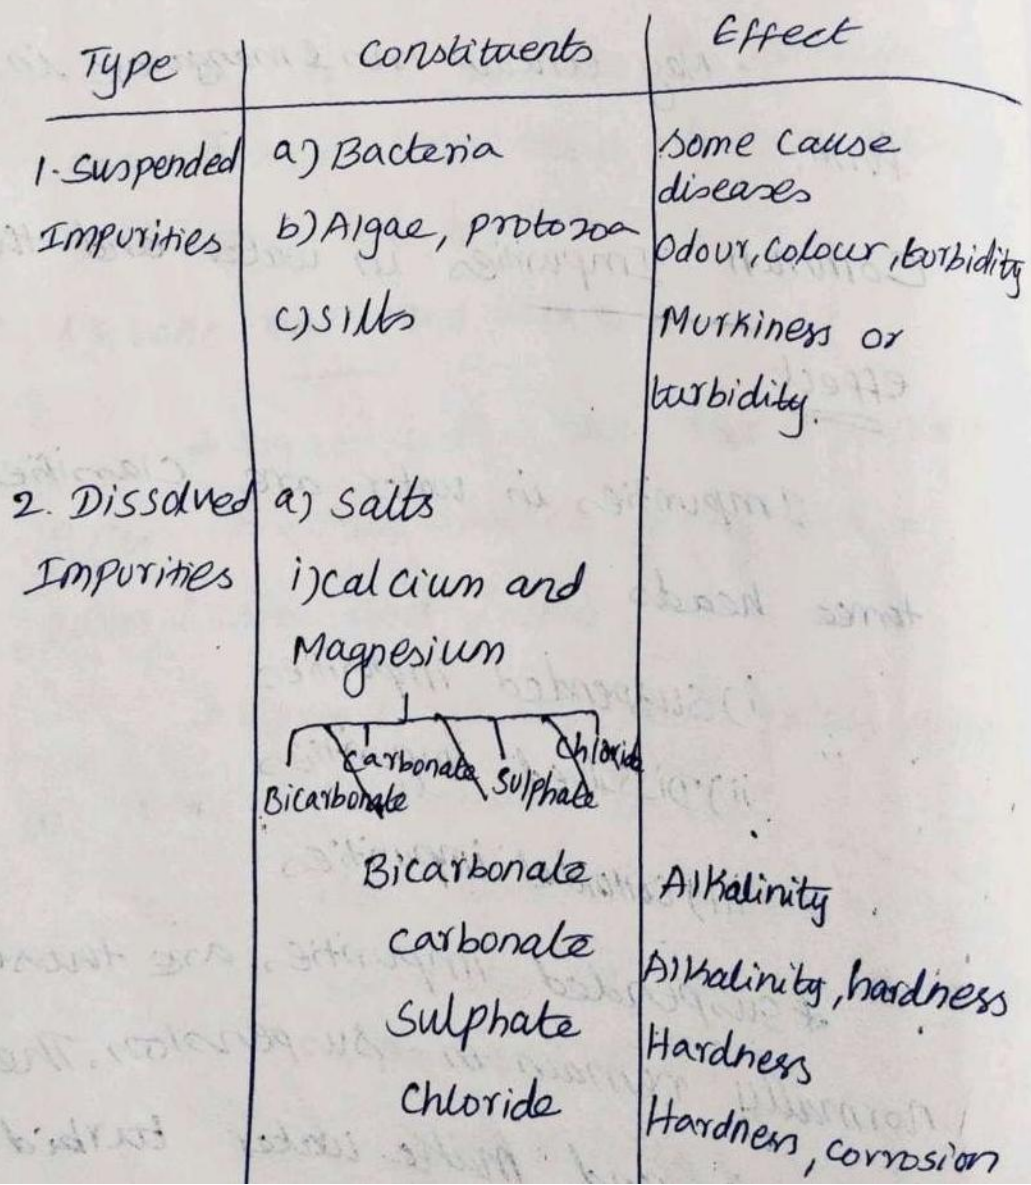 Type Constituents Effect
1. Suspended a) Bacteria Some cause
diseases
Impurities b) Algae, protozoa Odour, colour, turbidity
c) Silts Murkiness or
turbidity.
2. Dissolved a) Salts
Impurities i) Calcium and
Magnesium
Bicarbonate Carbonate Sulphate Chloride
Bicarbonate Alkalinity
Carbonate Alkalinity, hardness
Sulphate Hardness
Chloride Hardness, corrosion